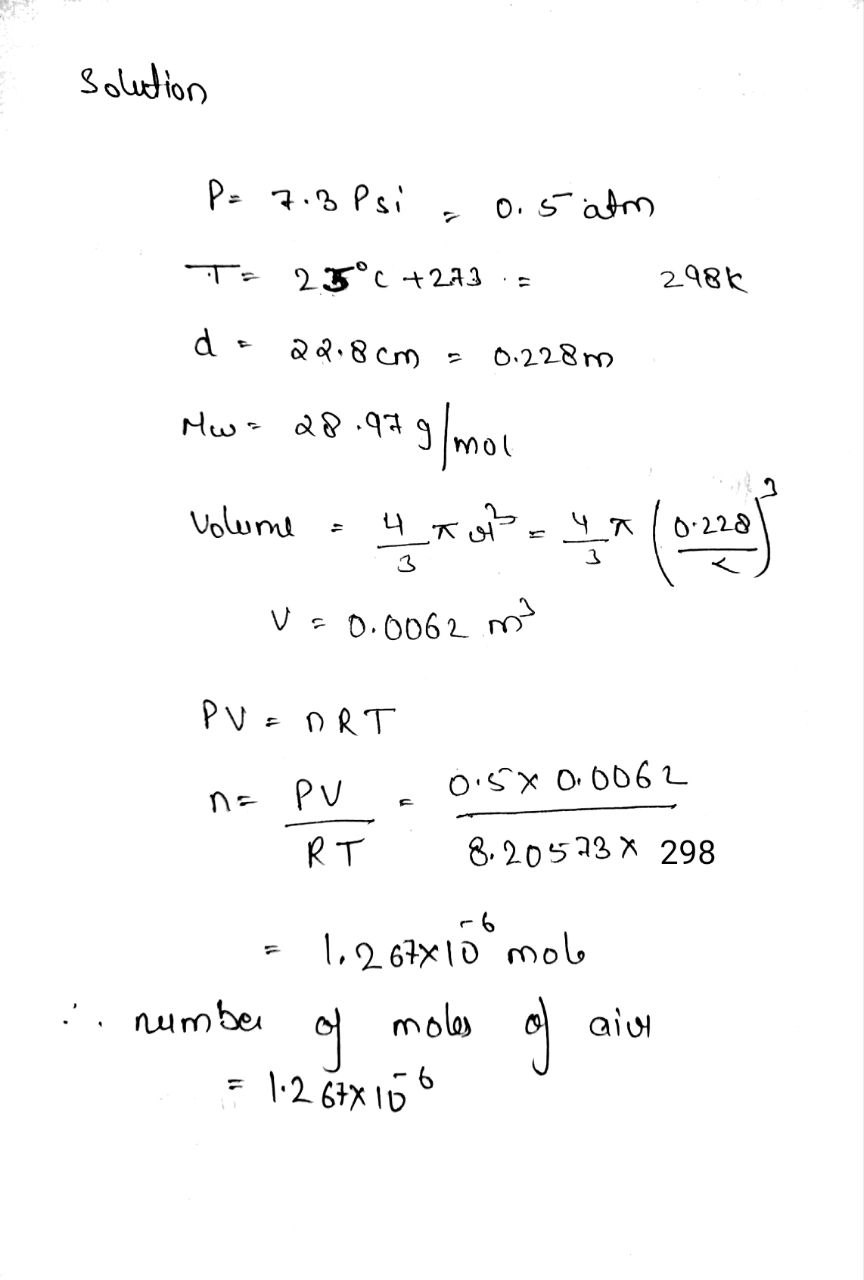 Solution
P= 7.3 Psi = 0.5 atm
T= 25°C +273 = 298K
d = 22.8 cm = 0.228m
Mw = 28.97 g/mol
Volume = 4/3 πr³ = 4/3 π (0.228/2)³
V = 0.0062 m³
PV = nRT
n= PV/RT = 0.5 x 0.0062/8.20573 x 298
= 1.267x10⁻⁶ mole
∴ number of moles of air
= 1.267x10⁻⁶